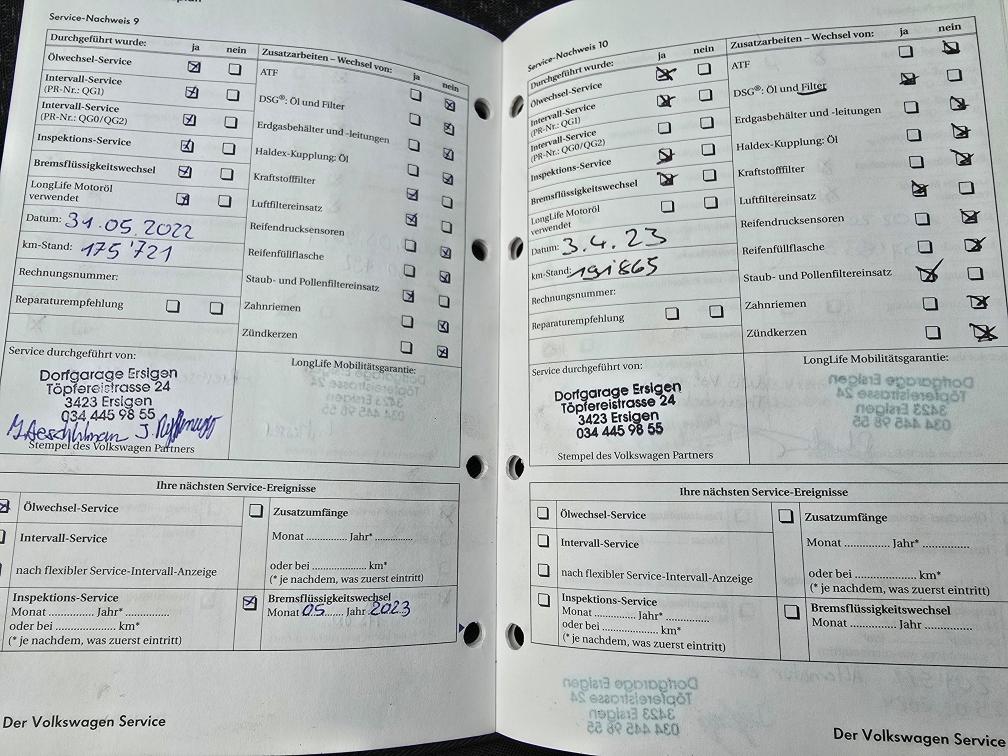 Service-Nachweis 9
Durchgeführt wurde: ja nein
Ölwechsel-Service
Intervall-Service
(PR-Nr.: QG1)
Intervall-Service
(PR-Nr.: QG0/QG2)
Inspektions-Service
Bremsflüssigkeitswechsel
LongLife Motoröl
verwendet
Datum: 31.05.2022
km-Stand: 175'721
Rechnungsnummer:
Reparaturempfehlung
Zusatzarbeiten – Wechsel von: ja nein
ATF
DSG®: Öl und Filter
Erdgasbehälter und -leitungen
Haldex-Kupplung: Öl
Kraftstofffilter
Luftfiltereinsatz
Reifendrucksensoren
Reifenfüllflasche
Staub- und Pollenfiltereinsatz
Zahnriemen
Zündkerzen
Service durchgeführt von:
Dorfgarage Ersigen
Töpfereistrasse 24
3423 Ersigen
034 445 98 55
Stempel des Volkswagen Partners
LongLife Mobilitätsgarantie:
Ihre nächsten Service-Ereignisse
Ölwechsel-Service
Intervall-Service
nach flexibler Service-Intervall-Anzeige
Inspektions-Service
Monat ............ Jahr* ............
oder bei ............ km*
(* je nachdem, was zuerst eintritt)
Zusatzumfänge
Monat ............ Jahr* ............
oder bei ............ km*
(* je nachdem, was zuerst eintritt)
Bremsflüssigkeitswechsel
Monat 05 Jahr 2023
Der Volkswagen Service
Service-Nachweis 10
Durchgeführt wurde: ja nein
Ölwechsel-Service
Intervall-Service
(PR-Nr.: QG1)
Intervall-Service
(PR-Nr.: QG0/QG2)
Inspektions-Service
Bremsflüssigkeitswechsel
LongLife Motoröl
verwendet
Datum: 3.4.23
km-Stand:
Rechnungsnummer:
Reparaturempfehlung
Zusatzarbeiten – Wechsel von: ja nein
ATF
DSG®: Öl und Filter
Erdgasbehälter und -leitungen
Haldex-Kupplung: Öl
Kraftstofffilter
Luftfiltereinsatz
Reifendrucksensoren
Reifenfüllflasche
Staub- und Pollenfiltereinsatz
Zahnriemen
Zündkerzen
Service durchgeführt von:
Dorfgarage Ersigen
Töpfereistrasse 24
3423 Ersigen
034 445 98 55
Stempel des Volkswagen Partners
LongLife Mobilitätsgarantie:
Ihre nächsten Service-Ereignisse
Ölwechsel-Service
Intervall-Service
nach flexibler Service-Intervall-Anzeige
Inspektions-Service
Monat ............ Jahr* ............
oder bei ............ km*
(* je nachdem, was zuerst eintritt)
Zusatzumfänge
Monat ............ Jahr* ............
oder bei ............ km*
(* je nachdem, was zuerst eintritt)
Bremsflüssigkeitswechsel
Monat ............ Jahr ............
Der Volkswagen Service